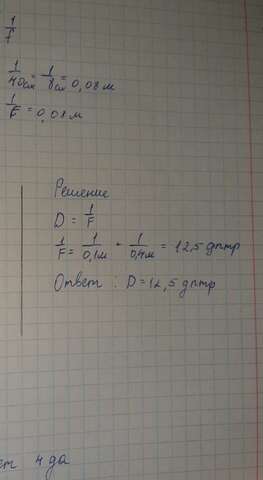 1/F
1/40см = 1/8см = 0,08м
1/F = 0,08м
Решение
D = 1/F
1/F = 1/0,1м + 1/0,4м = 12,5 дптр
Ответ : D = 12,5 дптр
4 да